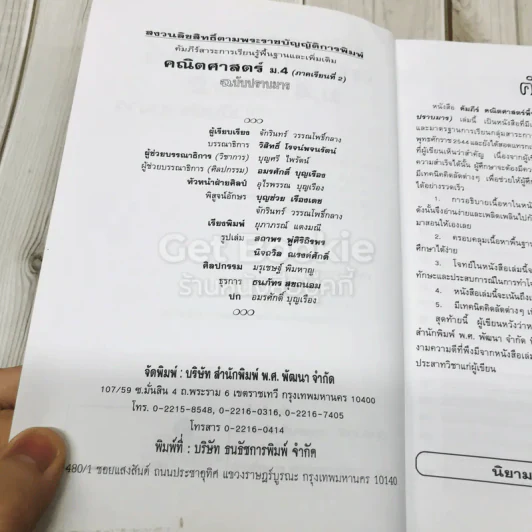 สงวนลิขสิทธิ์ตามพระราชบัญญัติการพิมพ์
คัมภีร์สาระการเรียนรู้พื้นฐานและเพิ่มเติม
คณิตศาสตร์ ม.4 (ภาคเรียนที่ 2)
ฉบับปราบมาร
ผู้เรียบเรียง จักรินทร์ วรรณโพธิ์กลาง
บรรณาธิการ วิสิทธิ์ โรจน์พจนรัตน์
ผู้ช่วยบรรณาธิการ (วิชาการ) บุญศรี ไพรัตน์
ผู้ช่วยบรรณาธิการ (ศิลปกรรม) อมรศักดิ์ บุญเรือง
หัวหน้าฝ่ายศิลป์ อุไรพรรณ บุญเรือง
พิสูจน์อักษร บุญช่วย เรืองเดช
จักรินทร์ วรรณโพธิ์กลาง
เรียงพิมพ์ ยุภาภรณ์ แดงมณี
รูปเล่ม สถาพร ฟูศิริถิรพร
นิจถวิล ณรงค์ศักดิ์
ศิลปกรรม มรุเชษฐ์ พิมหาญ
ธุรการ ธนภัทร สุขถนอม
ปก อมรศักดิ์ บุญเรือง
Get Bookie
จัดพิมพ์ : บริษัท สำนักพิมพ์ พ.ศ. พัฒนา จำกัด
107/59 ซ.มั่นสิน 4 ถ.พระราม 6 เขตราชเทวี กรุงเทพมหานคร 10400
โทร. 0-2215-8548, 0-2216-0316, 0-2216-7405
โทรสาร 0-2216-0414
พิมพ์ที่ : บริษัท ธนธัชการพิมพ์ จำกัด
480/1 ซอยแสงสันต์ ถนนประชาอุทิศ แขวงราษฎร์บูรณะ กรุงเทพมหานคร 10140
หนังสือ คัมภีร์ คณิตศาสตร์
ปราบมาร) เล่มนี้ เป็นหนังสือที่
และมาตรฐานการเรียนกลุ่มสาระ
พุทธศักราช 2544 และยังได้สอดแทรก
ที่ผู้เขียนเห็นว่าสำคัญ เนื่องจาก
ความสำเร็จได้นั้น ผู้ศึกษาจะต้องมี
มีเทคนิคคิดลัดต่างๆ เพื่อช่วยให้ผู้
ได้อย่างรวดเร็ว
1. การอธิบายเนื้อหาในหนัง
ดังนั้นจึงอ่านง่ายและเพลิดเพลินไป
มาสอนให้เองเลย
2. ครอบคลุมเนื้อหาพื้นฐาน
ศึกษาได้ง่าย
3. โจทย์ในหนังสือเล่มนี้
ทักษะและประสบการณ์ในการทำ
4. หนังสือเล่มนี้จะเน้นถึง
5. มีเทคนิคคิดลัดต่างๆ
สุดท้ายนี้ ผู้เขียนหวังว่า
สำนักพิมพ์ พ.ศ. พัฒนา จำกัด
งามความดีที่พึงมีจากหนังสือ
ประสาทวิชาแก่ผู้เขียน
นิยาม